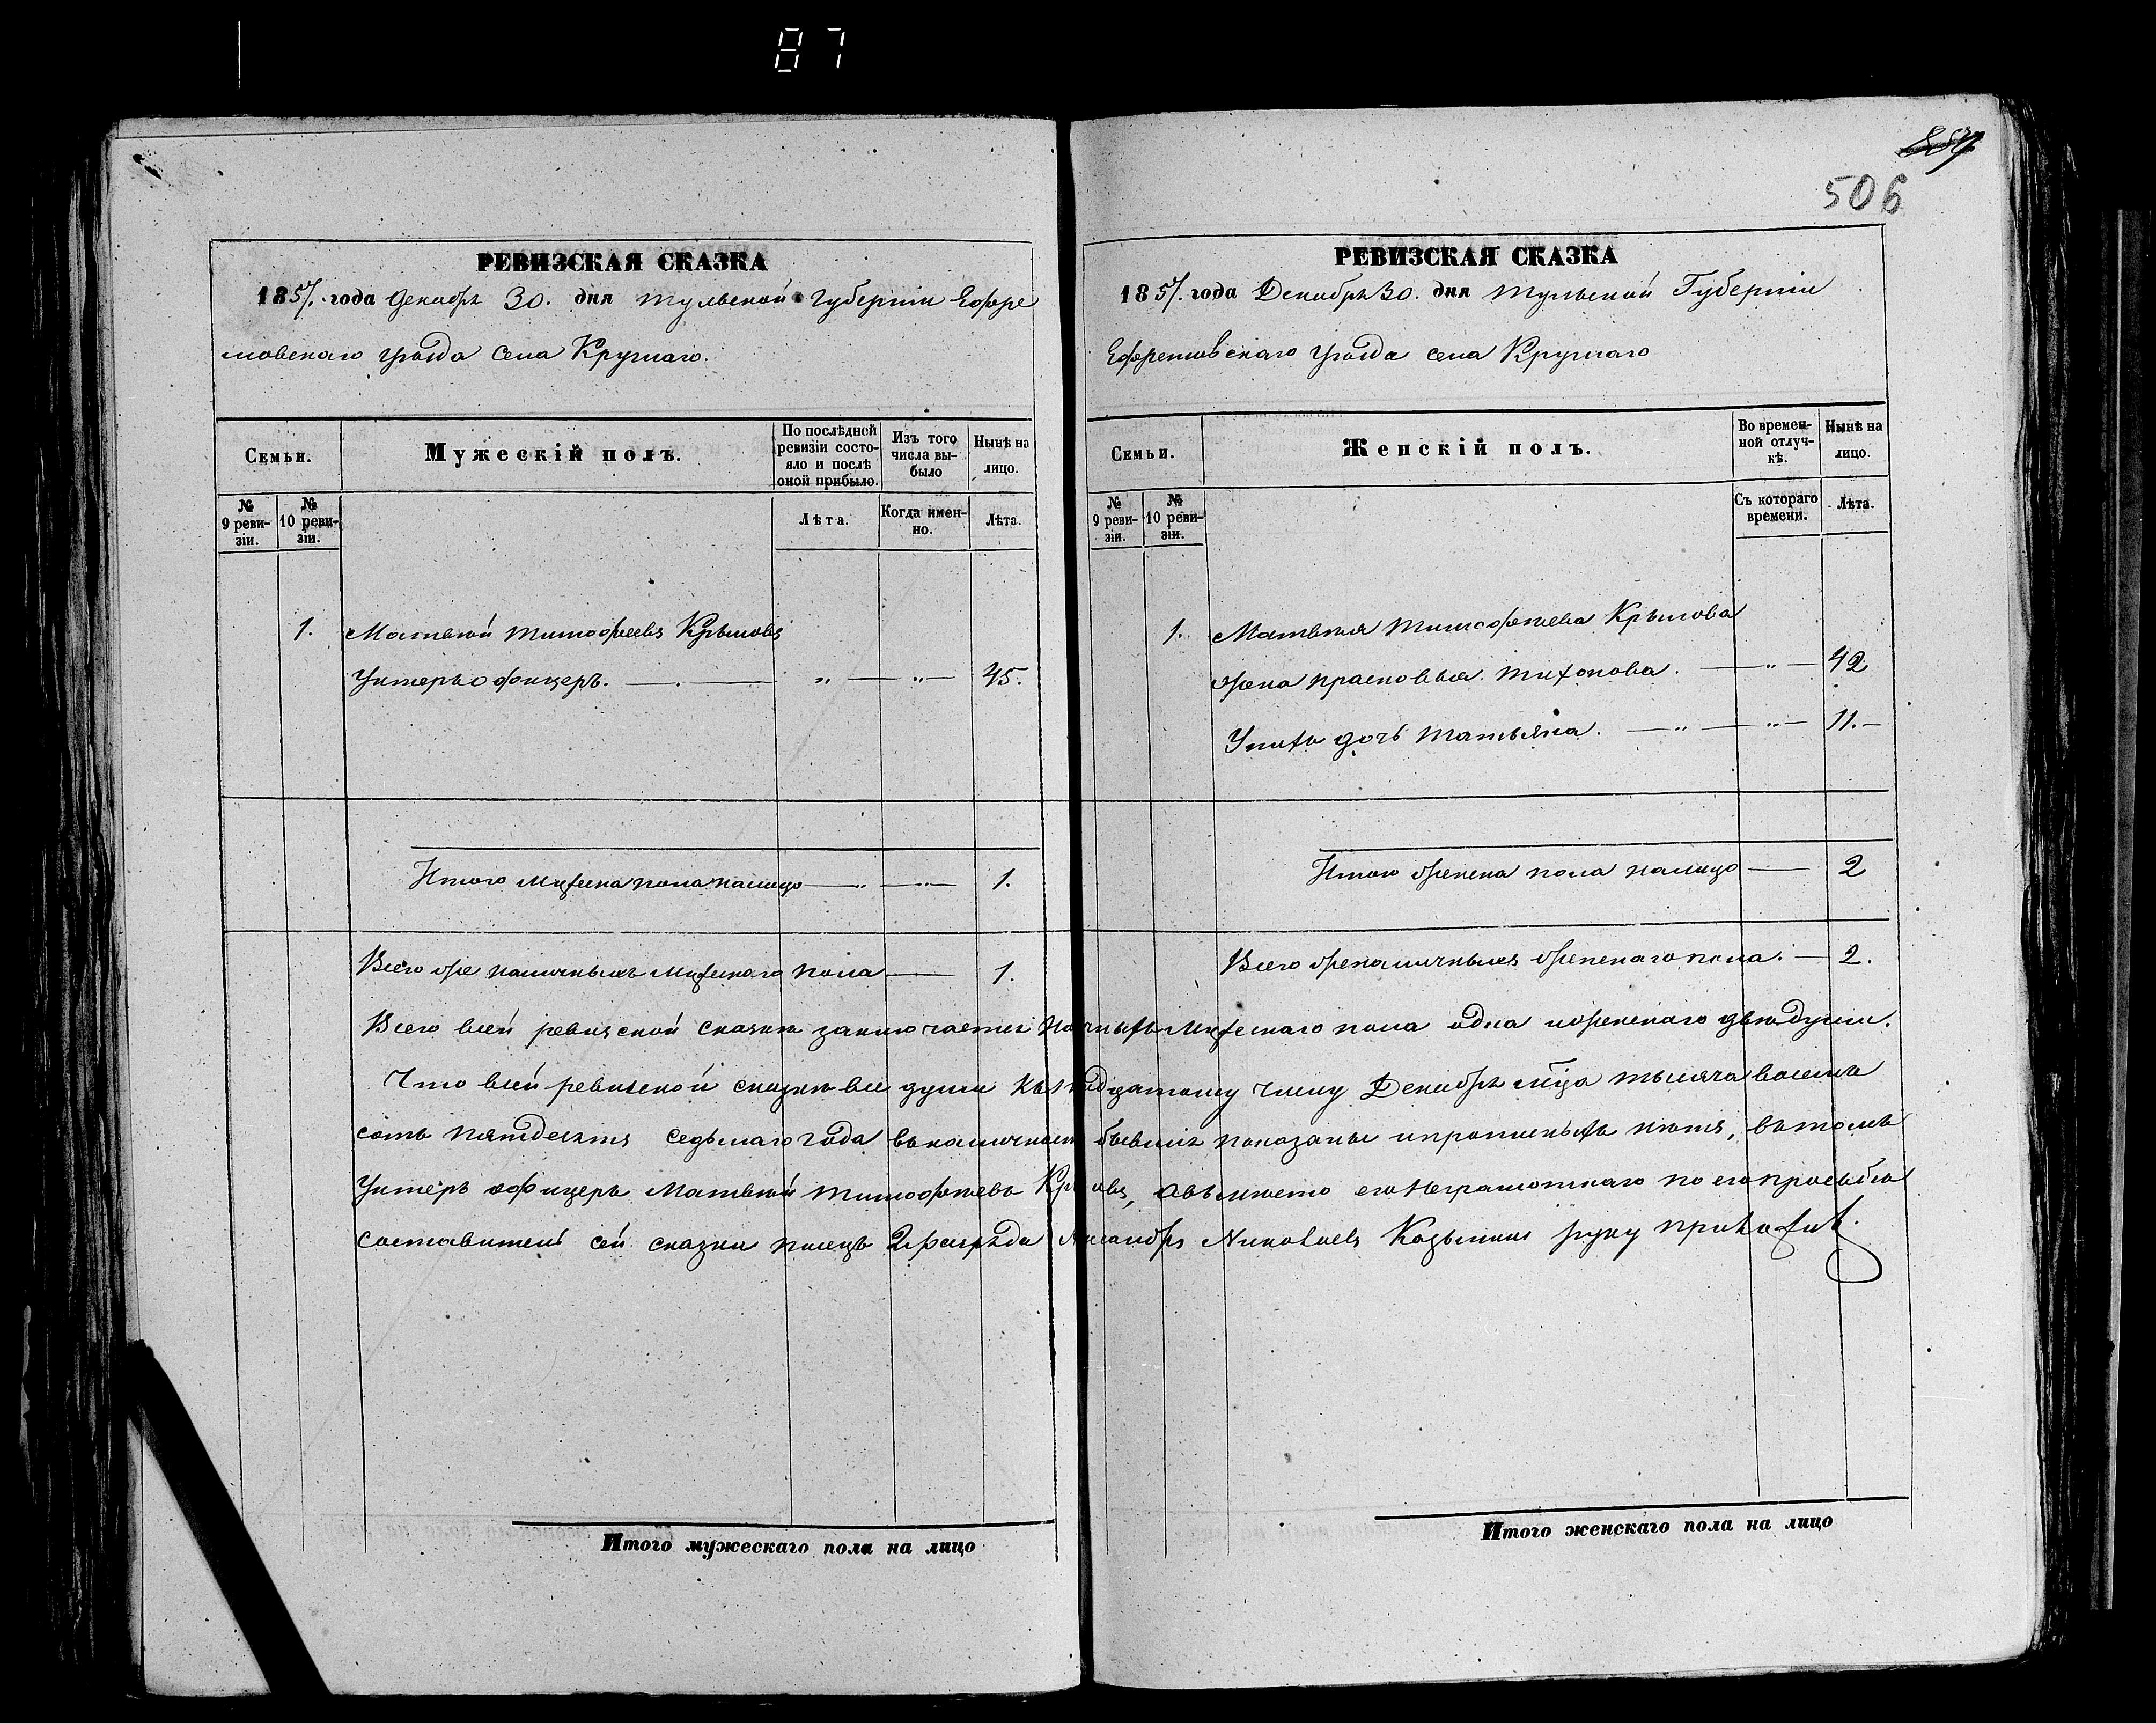 87
557
506
РЕВИЗСКАЯ СКАЗКА
1857. года Декабря 30. дня Тульской Губернiи Ефре
мовскаго уѣзда села Круглаго.
Семьи.
Мужескiй полъ.
По послѣдней ревизiи состояло и послѣ оной прибыло.
Изъ того числа выбыло
Нынѣ на лицо.
№ 9 ревизiи.
№ 10 ревизiи.
Лѣта.
Когда именно.
Лѣта.
1. Матвѣй Тимофеевъ Крыловъ
Унтеръ офицеръ. — „ — „ — 45.
Итого мужеска пола налицо — „ — „ — 1.
Всего же наличныхъ мужескаго пола — 1.
РЕВИЗСКАЯ СКАЗКА
1857. года Декабря 30. дня Тульской Губернiи
Ефремовскаго уѣзда села Круглаго
Семьи.
Женскiй полъ.
Во временной отлучкѣ.
Нынѣ на лицо.
№ 9 ревизiи.
№ 10 ревизiи.
Съ котораго времени.
Лѣта.
1. Матвѣя Тимофѣева Крылова
жена Прасковья Тихонова. — „ — 42
У нихъ дочь Татьяна. — „ — „ — 11. —
Итого женска пола налицо — 2
Всего же наличныхъ женскаго пола. — 2.
Всего всей ревизской сказкѣ заключается мужескаго пола одна и женскаго двѣ души.
Что всей ревизской сказкѣ все души къ числу Декабря мца тысяча восемь
сотъ пятдесятъ седьмаго года въ наличности бывшiя показаны и пропис­ныхъ нѣтъ, въ томъ
Унтеръ офицеръ Матвѣй Тимофѣевъ Крыловъ, а вмѣсто его неграмотнаго по его прозьбѣ
составитель сей сказки писецъ 2 разряда Николаевъ Козьминъ руку приложилъ.
Итого мужескаго пола на лицо
Итого женскаго пола на лицо